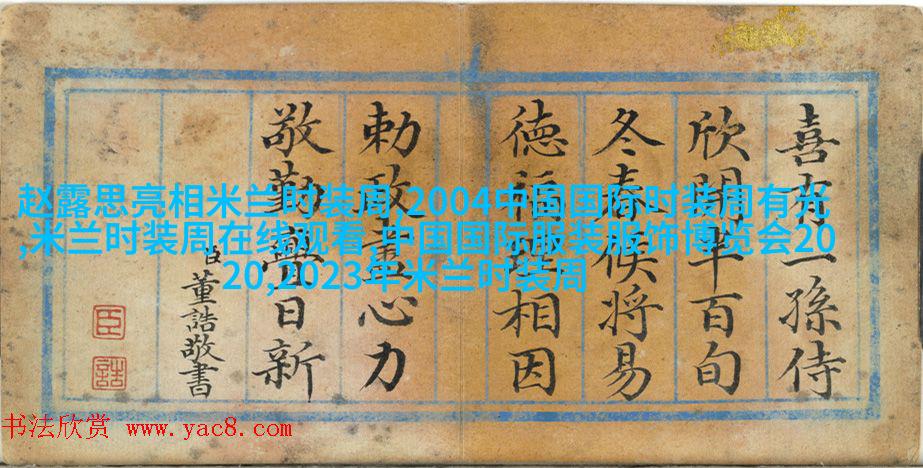 赵露思亮相米兰时装周,2004中国国际时装周有光
,米兰时装周在线观看,中国国际服装服饰博览会20
20,2023年米兰时装周
喜有一孫侍
欣開半百旬
冬春候将易
德福相因
勅政心力
敬勤日新
臣董誥敬書
臣
誥
书法欣赏 www.yac8.com